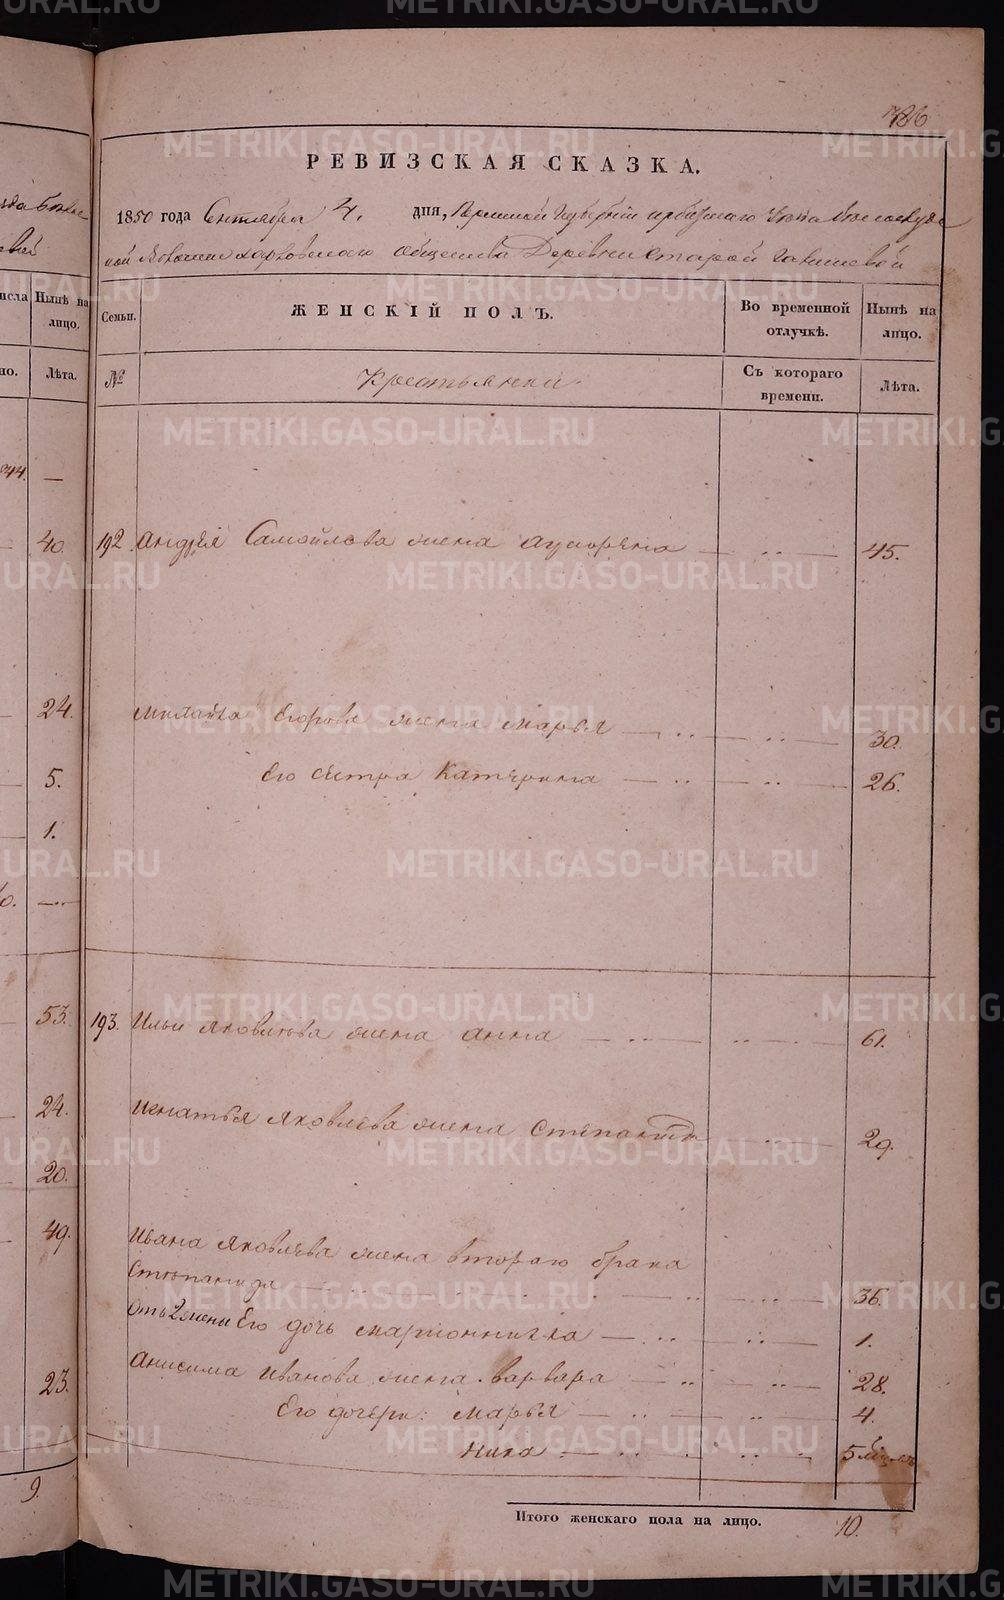 METRIKI.GASO-URAL.RU
РЕВИЗСКАЯ СКАЗКА.
1850 года Сентября 4. дня, Пермской Губернии Ирбитского Уезда Белослудс
кой Волости Харловского общества Деревни Старой Гаишевой
Ныне на лицо.
Лѣта.
Семьи.
ЖЕНСКІЙ ПОЛЪ.
Во временной отлучкѣ.
Нынѣ на лицо.
№
Крестьянки.
Съ котораго времени.
Лѣта.
844. —
40. 192. Андрея Самойлова жена — 45.
24. Егорова жена Марья — 30.
5. Его сестра Катерина — 26.
1.
53. 193. Ильи Яковлева жена Анна — 61.
24. Игнатья Яковлева жена Степанида 29.
20.
49. Ивана Яковлева жена втораго брака
Степанида — 36.
Отъ 2 жены Его дочь — 1.
23. Анисима Иванова жена Варвара — 28.
Его дочери: Марья — 4.
5 мѣсяц.
9.
Итого женскаго пола на лицо. 10.